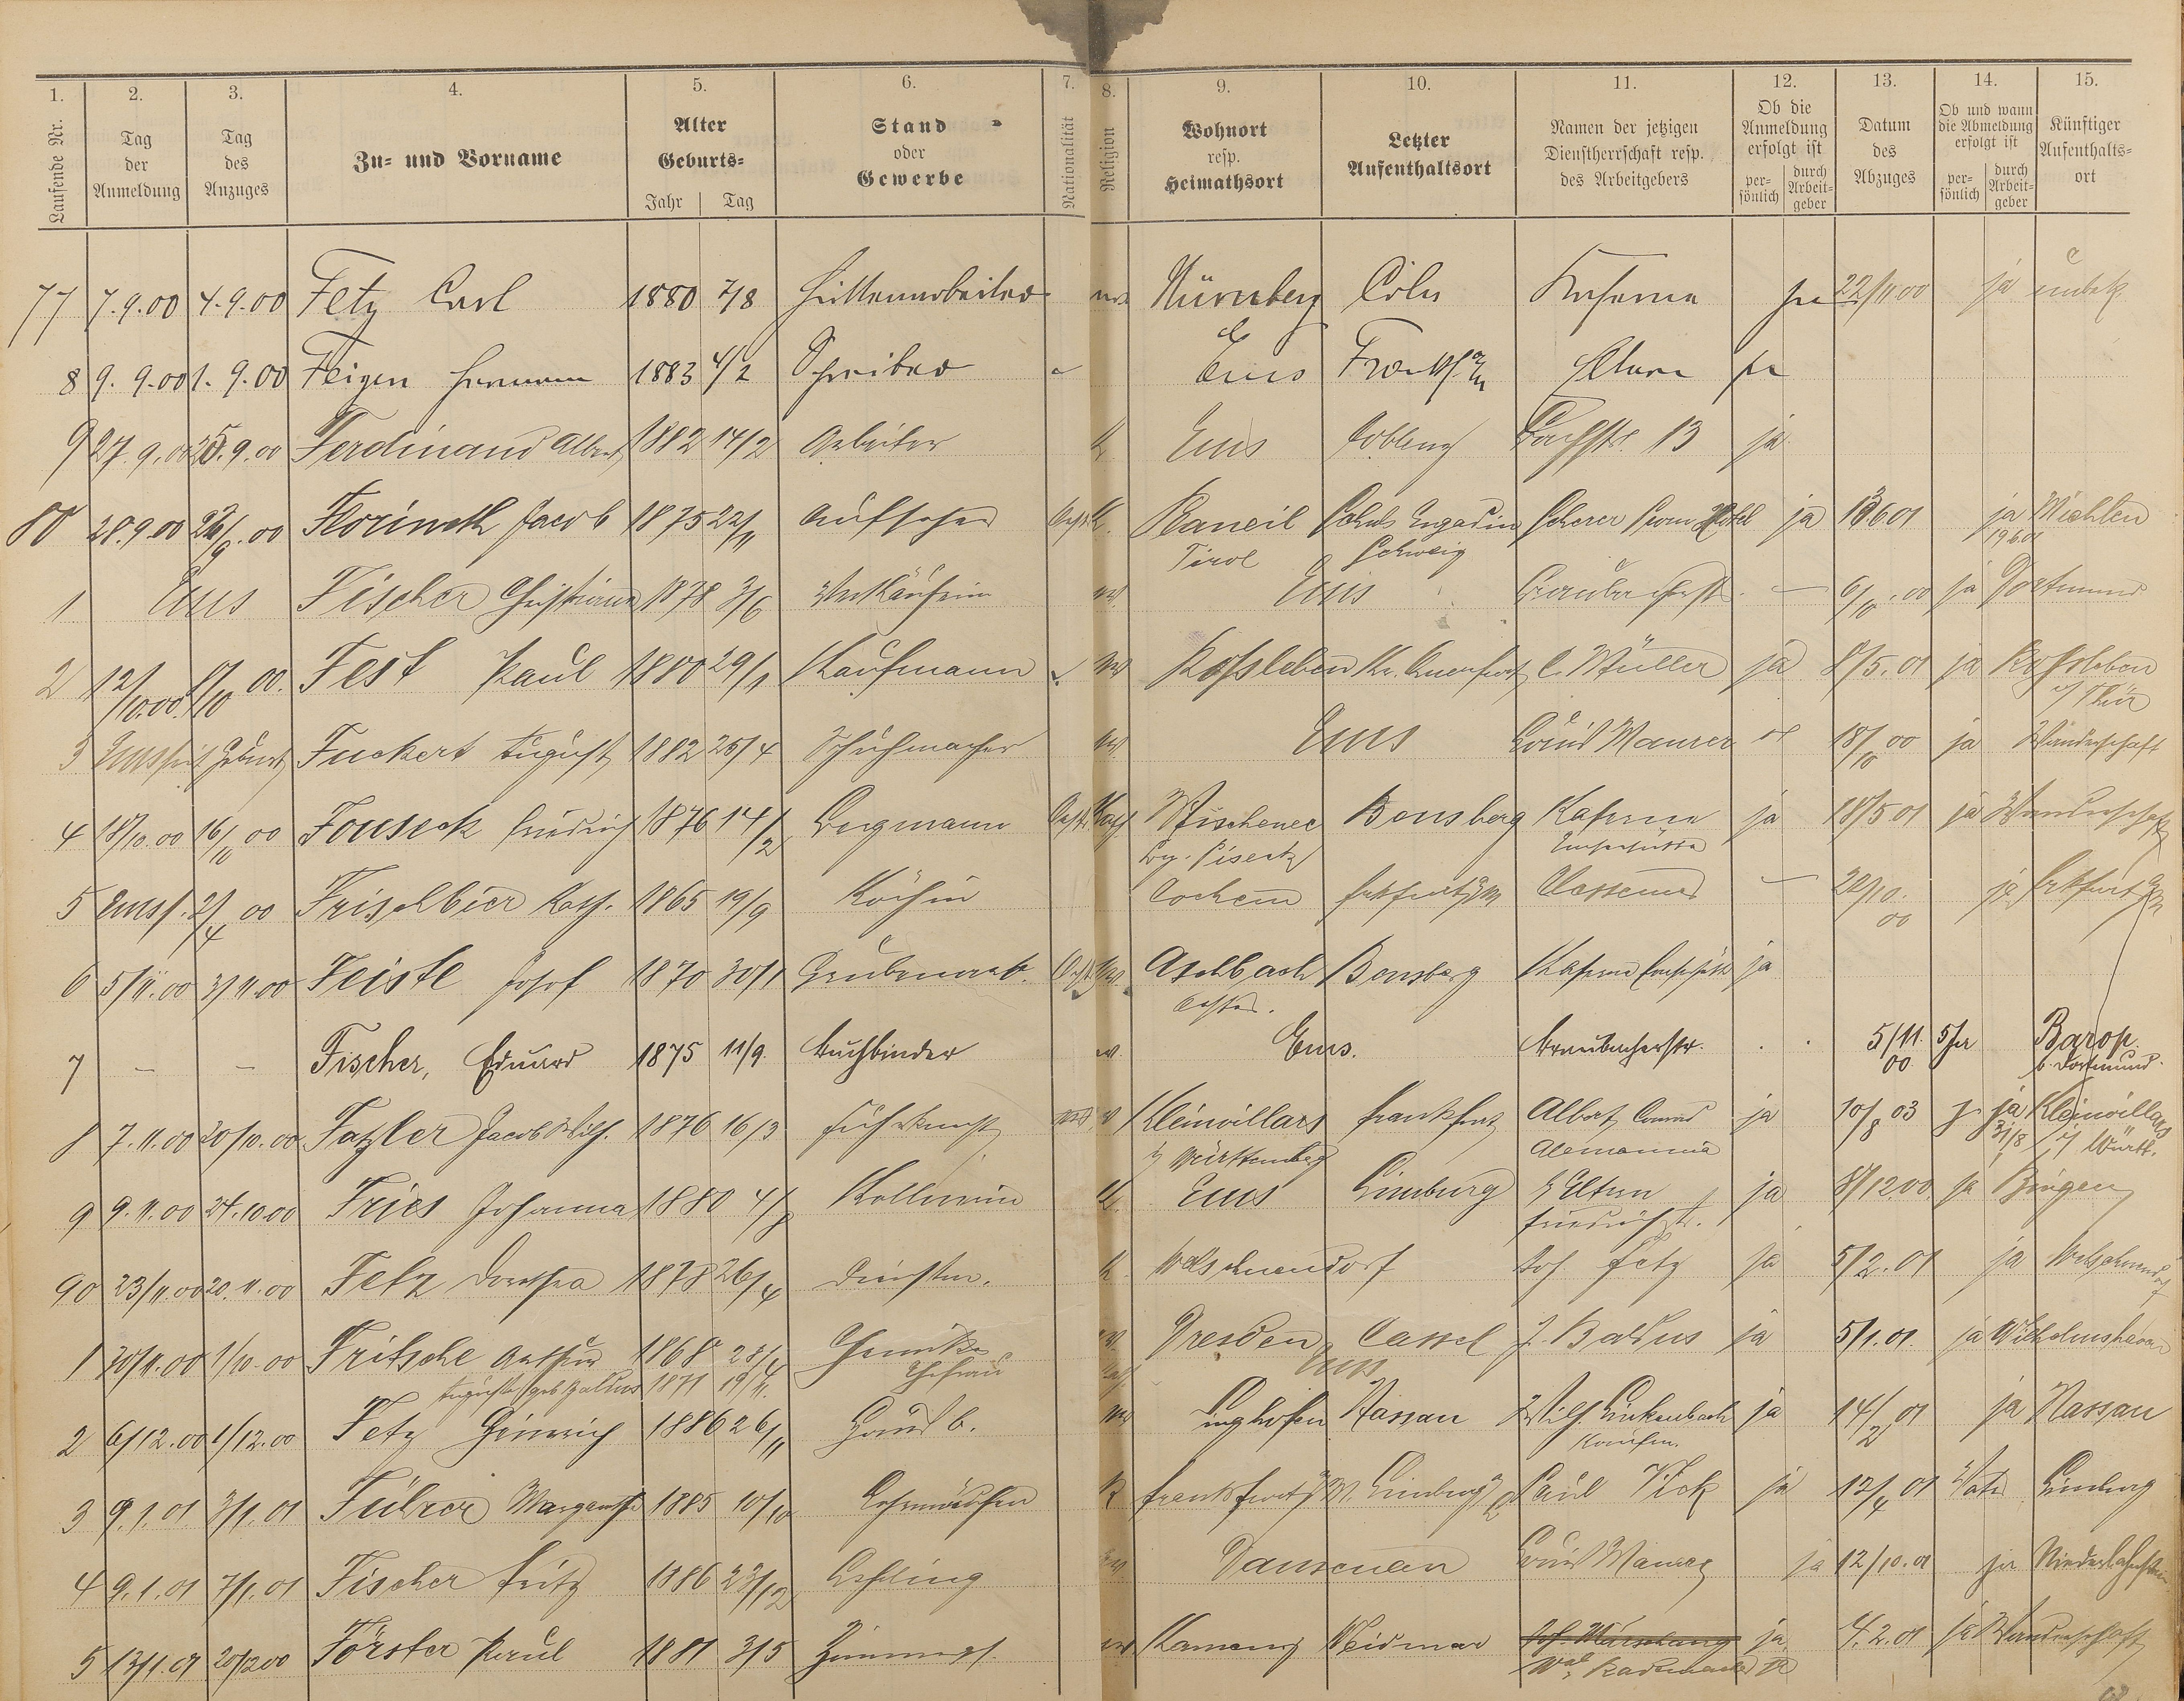 1. 2. 3. 4. 5. 6. 7. 8. 9. 10. 11. 12. 13. 14. 15.
Laufende Nr. Tag der Anmeldung Tag des Anzuges Zu- und Vorname Alter Geburts- Jahr Tag Stand oder Gewerbe Nationalität Religion Wohnort resp. Heimathsort Letzter Aufenthaltsort Namen der jetzigen Dienstherrschaft resp. des Arbeitgebers Ob die Anmeldung erfolgt ist per- sönlich durch Arbeit- geber Datum des Abzuges Ob und wann die Abmeldung erfolgt ist per- sönlich durch Arbeit- geber Künftiger Aufenthalts- ort
77 7.9.00 4.9.00 Fetz Carl 1880 7/8 Hüttenarbeiter Nürnberg Cöln Kaserne ja 22/11 00 ja unbek.
8 9.9.00 1.9.00 Feigen Hermann 1883 4/2 Schreiber Ems Frankf a/M Eltern ja
9 27.9.00 25.9.00 Ferdinand Albert 1882 14/2 Arbeiter K Ems Coblenz 13 ja
80 28.9.00 00 Florineth Jacob 1875 22/11 Aufseher K. Schuls Engadin Scherer Hotel ja 13 6 01 ja Miehlen
Tirol Schweiz 19 6 01
1 Ems Fischer Christiane 1878 3/6 Verkäuferin Ems 6/10.00 ja Dortmund
2 12/10.00. 00. Fest Paul 1880 29/1 Kaufmann Rossleben Kr. Querfurt C. Müller ja 8/5.01 ja Rossleben
i/Thür
3 Ems seit Geburt Fuckert August 1882 25/4 Schuhmacher Ems Louis Maurer 18/10 00 ja Wanderschaft
4 18/10.00 16/10 00 Fouseck Friedrich 1876 14/2 Bergmann Bensberg Kaserne ja 18/5 01 ja Wanderschaft
Emserhütte
5 Ems 2/4 00 Frischbier Kath. 1865 19/9 Köchin Cochem Frkfurt a/M 22/10. 00 ja Frkfurt a/M
6 5/11.00 3/11.00 Feistl Josef 1870 30/1 Grubenarb. Aschbach Bensberg Kaserne ja
7 - - Fischer, Eduard 1875 11/9. Buchbinder Ems. Braubacherstr. 5/11. 00 Barop
b. Dortmund.
8 7.11.00 20/10.00 Fazler Jacob Wilh. 1876 16/3 Fuhrknecht Kleinvillars Frankfurt Albert Conrad ja 10/8 03 ja Kleinvillars
i/ Württemberg Alemannia 31/8 i/ Württ.
9 9.11.00 24.10.00 Fries Johanna 1880 Kellnerin K. Ems Limburg Eltern ja 8/12 00 ja Bingen
Friedrichstr.
90 23/11.00 20.11.00 Fetz Dorothea 1878 26/4 Dienstm. K. Welschneudorf Joh. Fetz ja 5/2.01 ja Welschneudorf
1 30/11.00 1/10.00 Fritsche Arthur 1868 Chemiker Dresden Cassel J. Baldus ja 5/1.01. ja Wilhelmshaven
Auguste geb. Baldus 1871 19/11. Ehefrau Ems
2 6/12.00 1/12.00 Fetz Heinrich 1886 26/11 Hausb. Nassau Wilh. Linkenbach ja 14/2 01 ja Nassau
Kaufm.
3 9.1.01 3/1.01 Führer Margarethe 1885 10/10 Lehrmädchen K Frankfurt a/M. Limburg Paul ja 12/4 01 Vater Limburg
4 9.1.01 7/1.01 Fischer Fritz 1886 23/12 Lehrling Dausenau Louis Maurer ja 12/10.01 ja Niederlahnstein
5 13/1.01 20/12 00 Förster Paul 1881 3/5 Kamenz Weimar ja 4.2.01 ja Wanderschaft